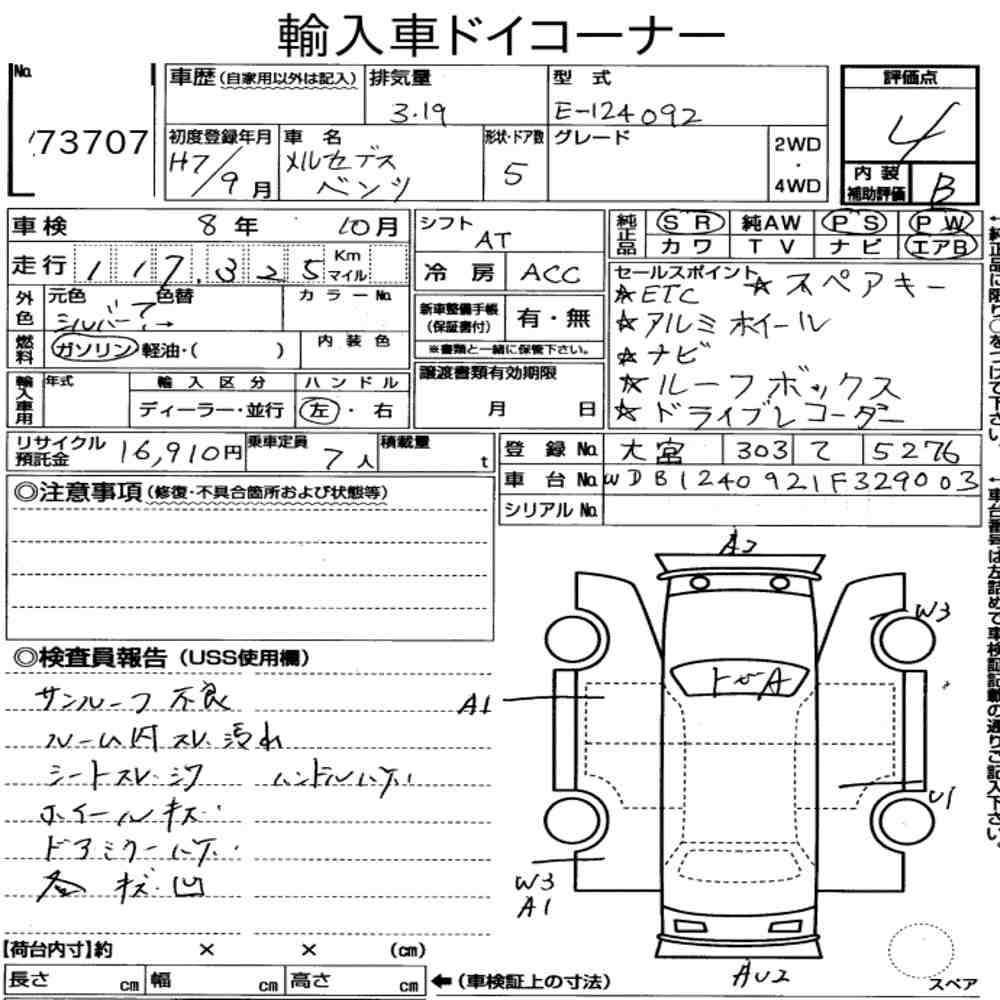 輸入車ドイコーナー
No.
73707
車歴(自家用以外は記入)
排気量
3.19
型 式
E-124092
評価点
4
初度登録年月
H7/9月
車 名
メルセデス
ベンツ
形状・ドア数
5
グレード
2WD
・
4WD
内装
補助評価
B
車検 8年 10月
シフト
AT
純正品
SR 純AW PS PW
カワ TV ナビ エアB
走行 117,325 Km
マイル
冷房 ACC
セールスポイント
☆ETC ☆スペアキー
☆アルミホイール
☆ナビ
☆ルーフボックス
☆ドライブレコーダー
外色
元色 色替
シルバー
カラーNo.
新車整備手帳
(保証書付)
有・無
※書類と一緒に保管下さい。
燃料
ガソリン・軽油・( )
内装色
輸入車用
年式
輸入区分
ディーラー・並行
ハンドル
左・右
譲渡書類有効期限
月 日
リサイクル
預託金
16,910円
乗車定員
7人
積載量
t
登録No. 大宮 303 て 5276
車台No. WDB1240921F329003
シリアルNo.
◎注意事項(修復・不具合箇所および状態等)
◎検査員報告(USS使用欄)
サンルーフ不良
ルーム内スレ汚れ
シートスレ・シワ ハンドルハゲ
ホイールキズ
ドアミラーハゲ
各キズ凹
A2
W3
トビA
A1
U1
W3
A1
AU2
スペア
【荷台内寸】約 × × (cm)
長さ cm 幅 cm 高さ cm
←(車検証上の寸法)
←純正品に限り○をつけて下さい。
←車台番号は左詰めで車検証記載の通りご記入下さい。